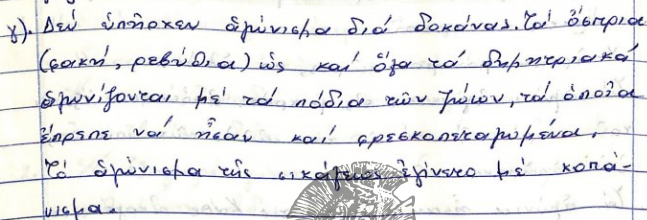 γ). Δέν ὑπῆρχεν ἁλώνισμα διά δοκάνας. Τά ὄσπρια
(φακή, ρεβύθια) ὡς καί ὅλα τά δημητριακά
ἁλωνίζονται μέ τά πόδια τῶν ζώων, τά ὁποῖα
ἔπρεπε νά ἦσαν καί φρεσκοπεταλωμένα.
Τό ἁλώνισμα τῆς σικάλεως ἐγίνετο μέ κοπά-
νισμα.